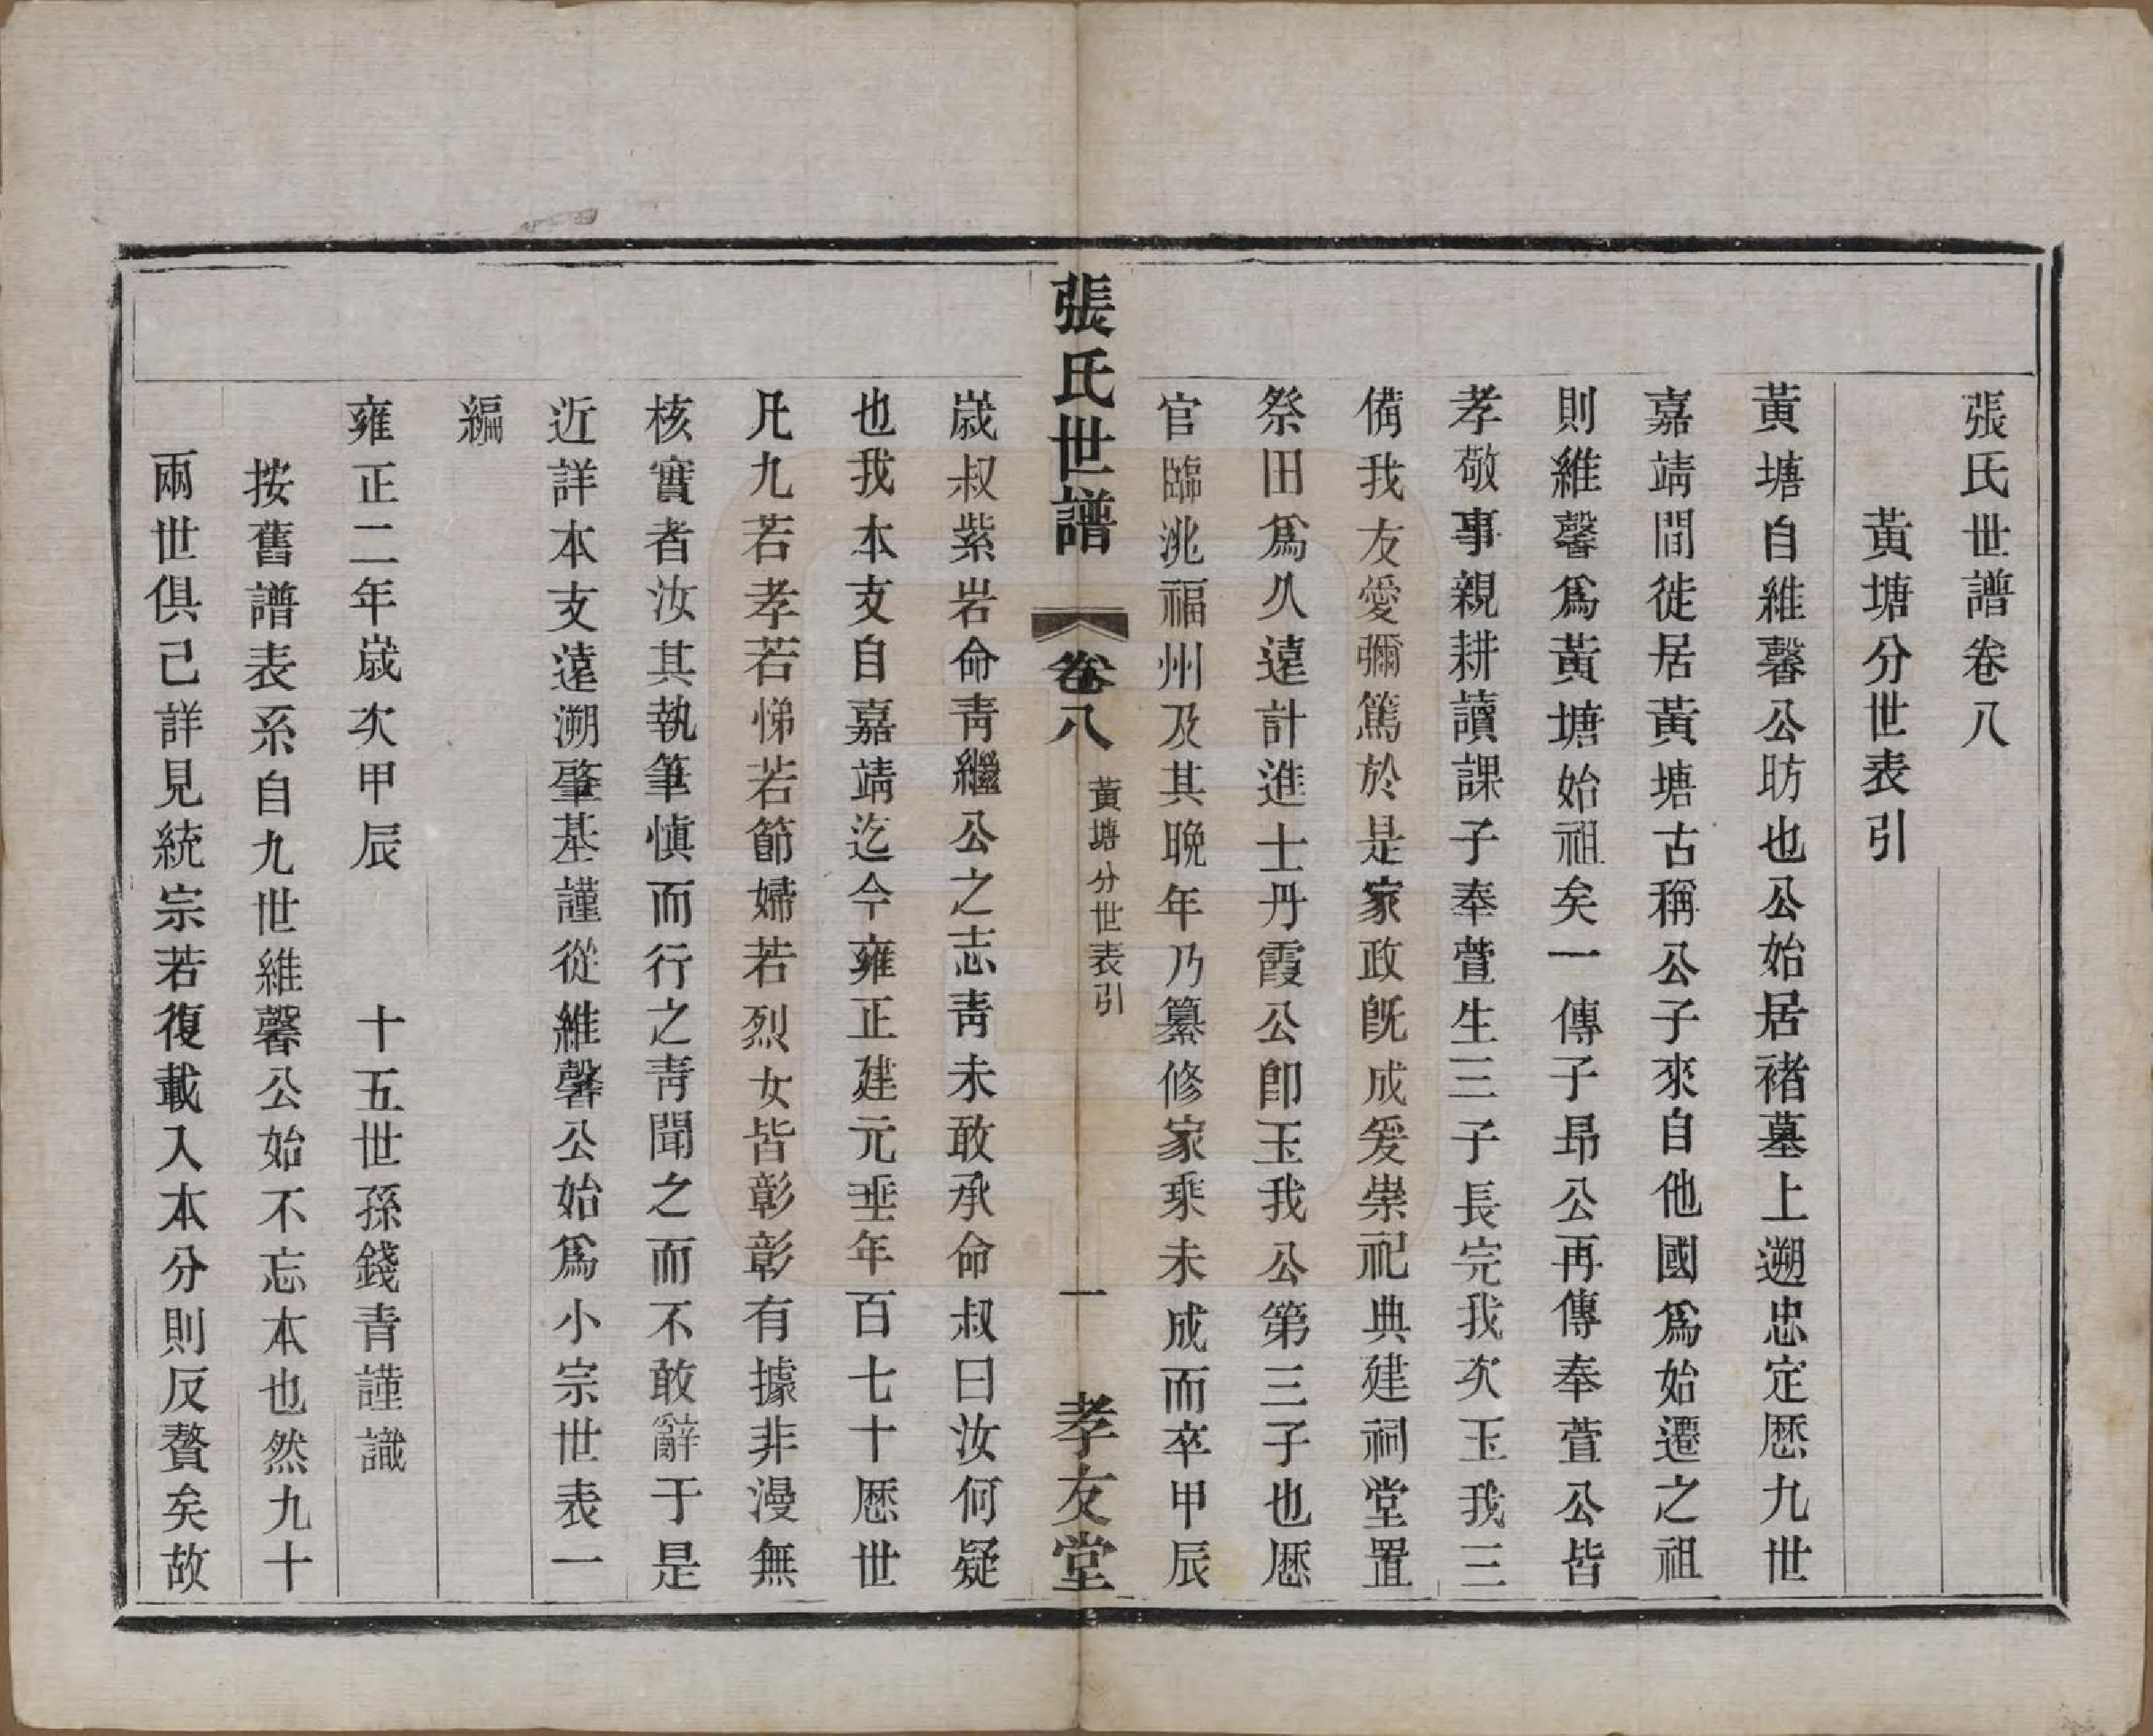 張氏世譜卷八
黃塘分世表引
黃塘自維馨公昉也公始居禇墓上遡忠定歷九世
嘉靖間徙居黃塘古稱公子來自他國爲始遷之祖
則維馨爲黃塘始祖矣一傳子昻公再傳奉萱公皆
孝敬事親耕讀課子奉萱生三子長完我次玉我三
備我友愛彌篤於是家政旣成爰崇祀典建祠堂置
祭田爲久遠計進士丹霞公卽玉我公第三子也歷
官臨洮福州及其晚年乃纂修家乘未成而卒甲辰
張氏世譜 卷八 黃塘分世表引 一 孝友堂
歲叔紫岩命靑繼公之志靑未敢承命叔曰汝何疑
也我本支自嘉靖迄今雍正建元垂年百七十歷世
凡九若孝若悌若節婦若烈女皆彰彰有據非漫無
核實者汝其執筆愼而行之靑聞之而不敢辭于是
近詳本支遠溯肇基謹從維馨公始爲小宗世表一
編
雍正二年歲次甲辰 十五世孫錢青謹識
按舊譜表系自九世維馨公始不忘本也然九十
兩世俱已詳見統宗若復載入本分則反贅矣故